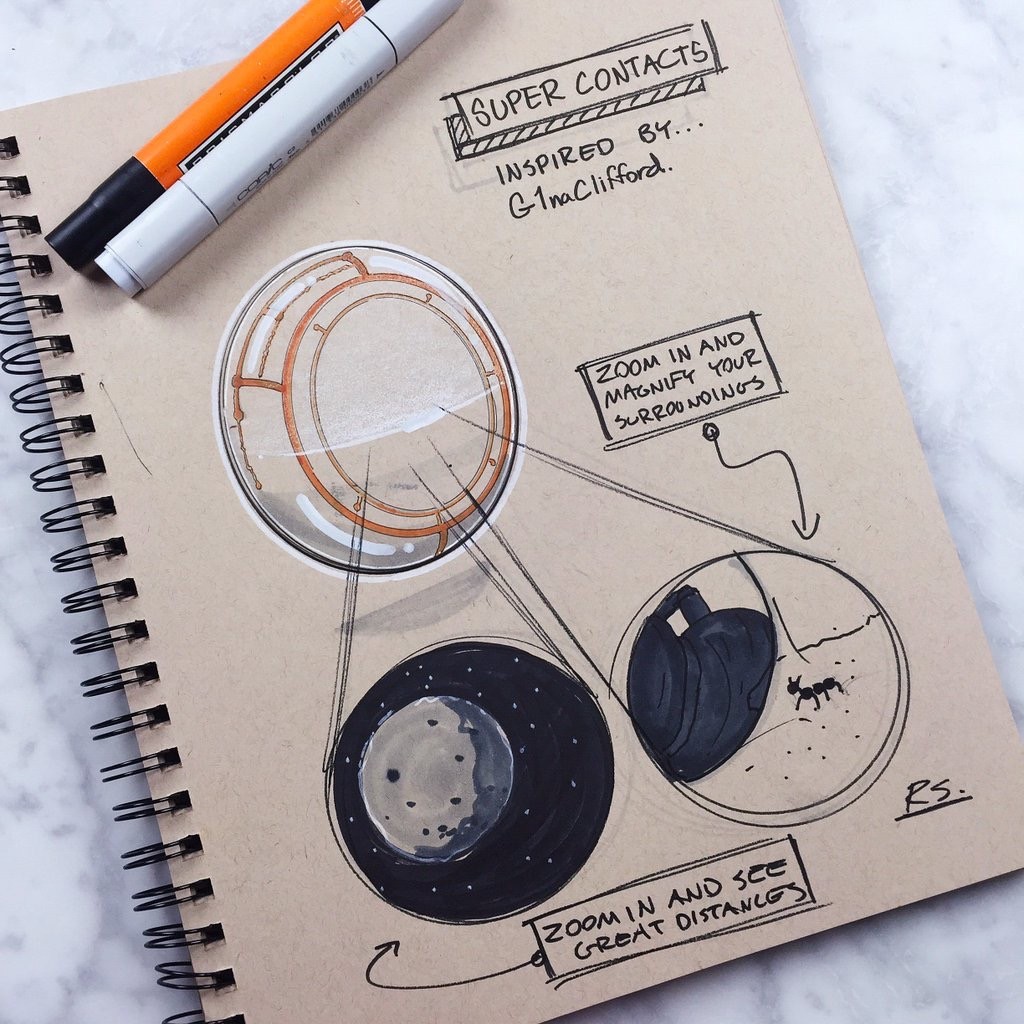 SUPER CONTACTS
INSPIRED BY...
G1naClifford.
ZOOM IN AND
MAGNIFY YOUR
SURROUNDINGS
ZOOM IN AND SEE
GREAT DISTANCES
RS.
PRISMACOLOR
COPIC